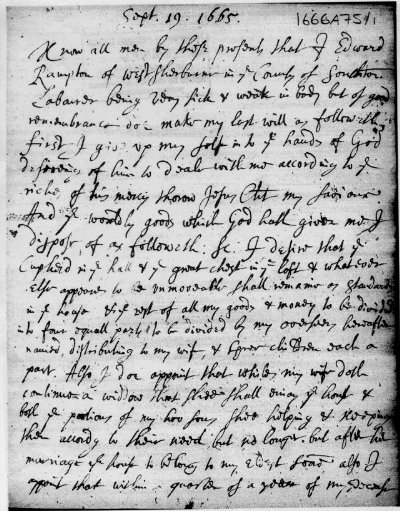 Sept. 19. 1665.
1666A75/1
Know all men by these presents that I Edward
Rampton of westsherburne in ye County of Southton
Labourer being very sick & weak in body but of good
remembrance doe make my last will as followeth
first I give up my self into ye hands of God
desireing of him to deale with me according to ye
riches of his mercy thorow Jesus Christ my saviour
And ye worldly goods which God hath given me I
dispose of as followeth: I desire that ye
Cupberd in ye hall & ye great chest in ye loft & whatever
else appeares to be unmoveable shall remaine as standards
in ye house & ye rest of all my goods & money to be divided
into four equall parts to be divided by my overseers hereafter
named, distributing to my wife & children each a
part. Also I doe appoint that whiles my wife doth
continue a widdow that shee shall enjoy ye house &
both ye portions of my two sons shee helping & keeping
them according to their need but no longer. but after her
marriage ye house to belong to my eldest sonn also I
apoint that within a quarter of a yeare of my decease